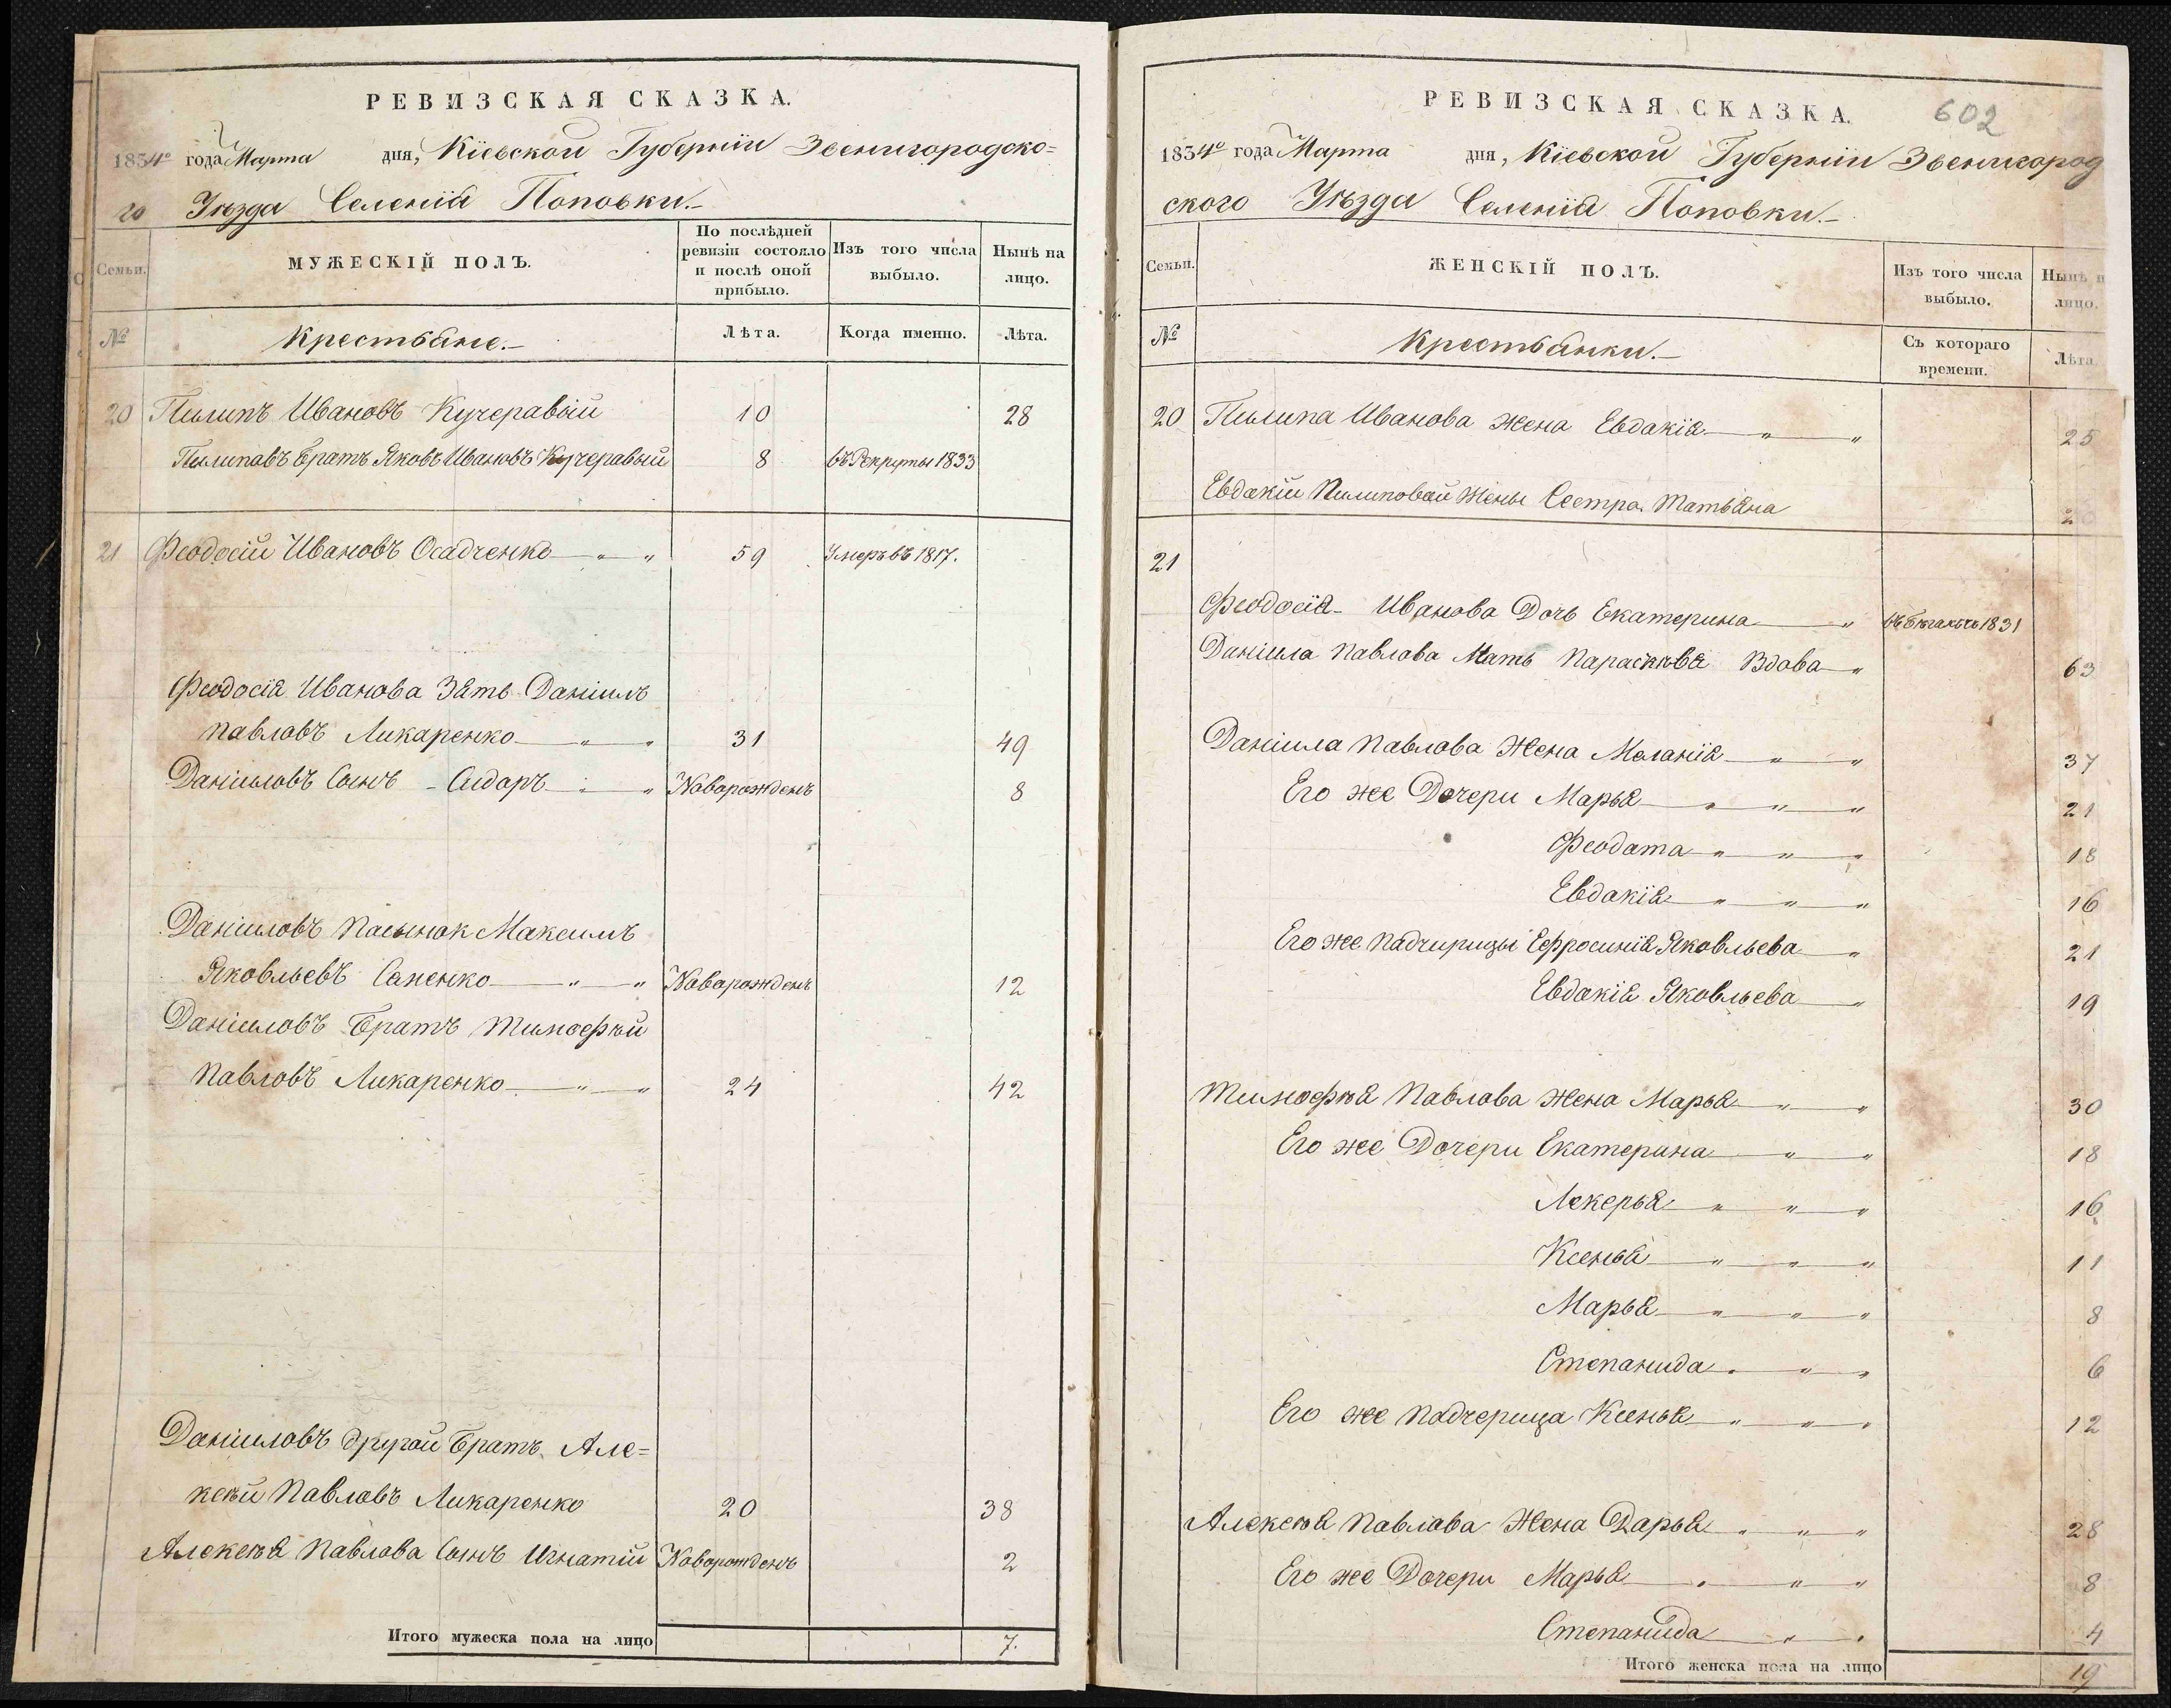 РЕВИЗСКАЯ СКАЗКА.
1834го года Марта дня, Кіевской Губерніи Звенигородско=
го Уѣзда Селенія Поповки.
Семьи.
МУЖЕСКІЙ ПОЛЪ.
По послѣдней ревизіи состояло и послѣ оной прибыло.
Изъ того числа выбыло.
Нынѣ на лицо.
№
Крестьяне.
Лѣта.
Когда именно.
Лѣта.
20 Пилипъ Ивановъ Кучеравый 10 28
Пилиповъ Братъ Яковъ Ивановъ Кучеравый 8 въ Рекруты 1833
21 Феодосій Ивановъ Осадченко " " 59 Умеръ въ 1817.
Феодосія Иванова Зять Даніилъ
Павловъ Ликаренко " " 31 49
Даніиловъ Сынъ Сидоръ " " Новорожденъ 8
Даніиловъ Пасынок Максимъ
Яковльевъ Саненко " " Новорожденъ 12
Даніиловъ Братъ Тимофѣй
Павловъ Ликаренко " " 24 42
Даніиловъ другой Братъ Але=
ксѣй Павловъ Ликаренко 20 38
Алексѣя Павлова Сынъ Игнатій Новорожденъ 2
Итого мужеска пола на лицо 7.
602
РЕВИЗСКАЯ СКАЗКА.
1834го года Марта дня, Кіевской Губерніи Звенигород
ского Уѣзда Селенія Поповки.
Семьи.
ЖЕНСКІЙ ПОЛЪ.
Изъ того числа выбыло.
Нынѣ н лицо.
№
Крестьянки.
Съ котораго времени.
Лѣта.
20 Пилипа Иванова жена Евдакія " " 25
Евдакіи Пилиповай жены Сестра Татьяна
21
Феодосія Иванова Дочь Екатерина " въ бѣгахъ 1831
Даніила Павлова Мать Параскѣвя Вдова " 63
Даніила Павлова Жена Меланія " " 37
Его же Дочери Марья " " " 21
Феодата " " " 18
Евдакія " " " 16
Его же Падчирицы Ефросинія Яковльева " 21
Евдакія Яковльева " 19
Тимофѣя Павлова жена Марья " " 30
Его же Дочери Екатерина " " 18
Лекерья " " " 16
Ксенья " " " 11
Марья " " " 8
Степанида " " " 6
Его же Падчерица Ксенья " " " 12
Алексѣя Павлова Жена Дарья " " " 28
Его же Дочери Марья " " " 8
Степанида " " 4
Итого женска пола на лицо 19